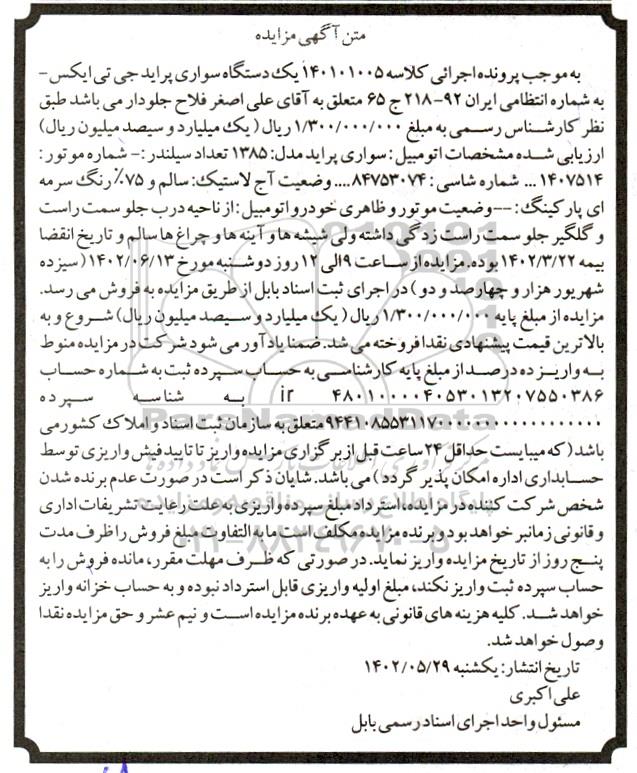 متن آگهی مزایده
به موجب پرونده اجرائی کلاسه ۱۴۰۱۰۱۰۰۵ یک دستگاه سواری پراید جی تی ایکس -
به شماره انتظامی ایران ۹۲- ۲۱۸ ج ۶۵ متعلق به آقای علی اصغر فلاح جلودار می باشد طبق
نظر کارشناس رسمی به مبلغ ۱/۳۰۰/۰۰۰/۰۰۰ ریال ( یک میلیارد و سیصد میلیون ریال)
ارزیابی شده مشخصات اتومبیل : سواری پراید مدل: ۱۳۸۵ تعداد سیلندر :- شماره موتور :
۱۴۰۷۵۱۴ ... شماره شاسی : ۸۴۷۵۳۰۷۴ .... وضعیت آج لاستیک: سالم و ۷۵٪ رنگ سرمه
ای پارکینگ : -- وضعیت موتور و ظاهری خودرو اتومبیل : از ناحیه درب جلو سمت راست
و گلگیر جلو سمت راست زدگی داشته ولی شیشه ها و آینه ها و چراغ ها سالم و تاریخ انقضا
بیمه ۱۴۰۲/۳/۲۲ بوده، مزایده از ساعت ۹ الی ۱۲ روز دوشنبه مورخ ۱۴۰۲/۰۶/۱۳ ( سیزده
شهریور هزار و چهارصد و دو) در اجرای ثبت اسناد بابل از طریق مزایده به فروش می رسد.
مزایده از مبلغ پایه ۱/۳۰۰/۰۰۰/۰۰۰ ریال ( یک میلیارد و سیصد میلیون ریال) شروع و به
بالاترین قیمت پیشنهادی نقدا فروخته می شد. ضمنا یادآور می شود شرکت در مزایده منوط
به واریز ده درصد از مبلغ پایه کارشناسی به حساب سپرده ثبت به شماره حساب
ir ۴۸۰۱۰۰۰۰۴۰۵۳۰۱۳۲۰۷۵۵۰۳۸۶ به شناسه سپرده
متعلق به سازمان ثبت اسناد و املاک کشور می
باشد ( که میبایست حداقل ۲۴ ساعت قبل از برگزاری مزایده واریز تا تایید فیش واریزی توسط
حسابداری اداره امکان پذیر گردد) می باشد. شایان ذکر است در صورت عدم برنده شدن
شخص شرکت کننده در مزایده، استرداد مبلغ سپرده واریزی به علت رعایت تشریفات اداری
و قانونی زمانبر خواهد بود و برنده مزایده مکلف است مابه التفاوت مبلغ فروش را ظرف مدت
پنج روز از تاریخ مزایده واریز نماید. در صورتی که ظرف مهلت مقرر، مانده فروش را به
حساب سپرده ثبت واریز نکند، مبلغ اولیه واریزی قابل استرداد نبوده و به حساب خزانه واریز
خواهد شد. کلیه هزینه های قانونی به عهده برنده مزایده است و نیم عشر و حق مزایده نقدا
وصول خواهد شد.
تاریخ انتشار: یکشنبه ۱۴۰۲/۰۵/۲۹
علی اکبری
مسئول واحد اجرای اسناد رسمی بابل
ParsNamadData
پایگاه اطلاع رسانی مناقصه و مزایده
۰۲۱-۸۸۳۴۹۶۷۰-۵